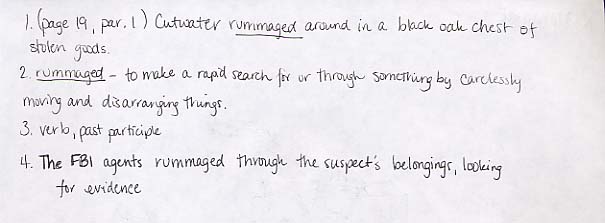 1. (page 19, par. 1) Cutwater rummaged around in a black oak chest of
stolen goods.
2. rummaged - to make a rapid search for or through something by carelessly
moving and disarranging things.
3. verb, past participle
4. The FBI agents rummaged through the suspect's belongings, looking
for evidence